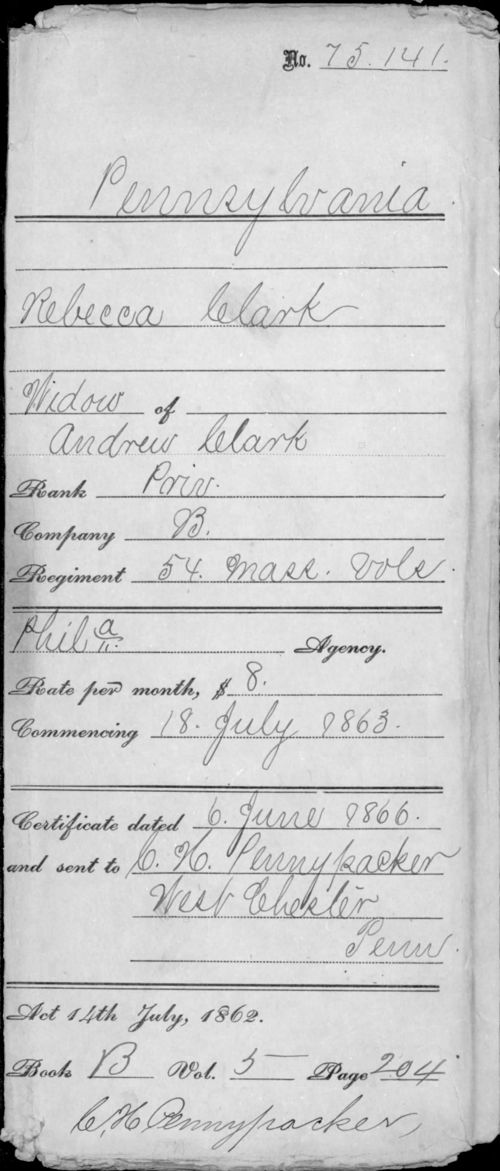 No. 75.141.
Pennsylvania
Rebecca Clark
Widow of
Andrew Clark
Rank Priv.
Company B.
Regiment 54. Mass. Vols.
Phila. Agency.
Rate per month, $ 8.
Commencing 18. July 1863.
Certificate dated 6. June 1866.
and sent to C. H. Pennypacker
West Chester
Penn.
Act 14th July, 1862.
Book B Vol. 5 Page 204
C H Pennypacker,